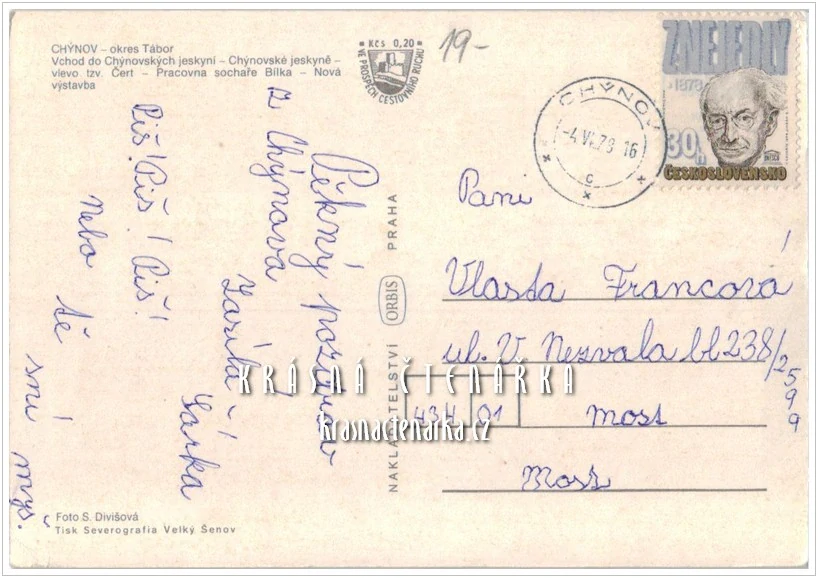 CHÝNOV – okres Tábor
Vchod do Chýnovských jeskyní – Chýnovské jeskyně –
vlevo tzv. Čert – Pracovna sochaře Bílka – Nová
výstavba
Kčs 0,20
VE PROSPĚCH CESTOVNÍHO RUCHU
19-
CHÝNOV
-4.VI.78 16
c
ZNEJEDLÝ
1878
30h
ČESKOSLOVENSKO
Pěkný pozdrav
z Chýnova
Šárka
Piš! Piš! Piš!
Nebo tě sní myš.
NAKLADATELSTVÍ ORBIS PRAHA
Paní
Vlasta Francová
ul. V. Nezvala bl 238/2599
434 01 Most
Most
KRÁSNÁ ČTENÁŘKA
krasnactenarka.cz
Foto S. Divišová
Tisk Severografia Velký Šenov